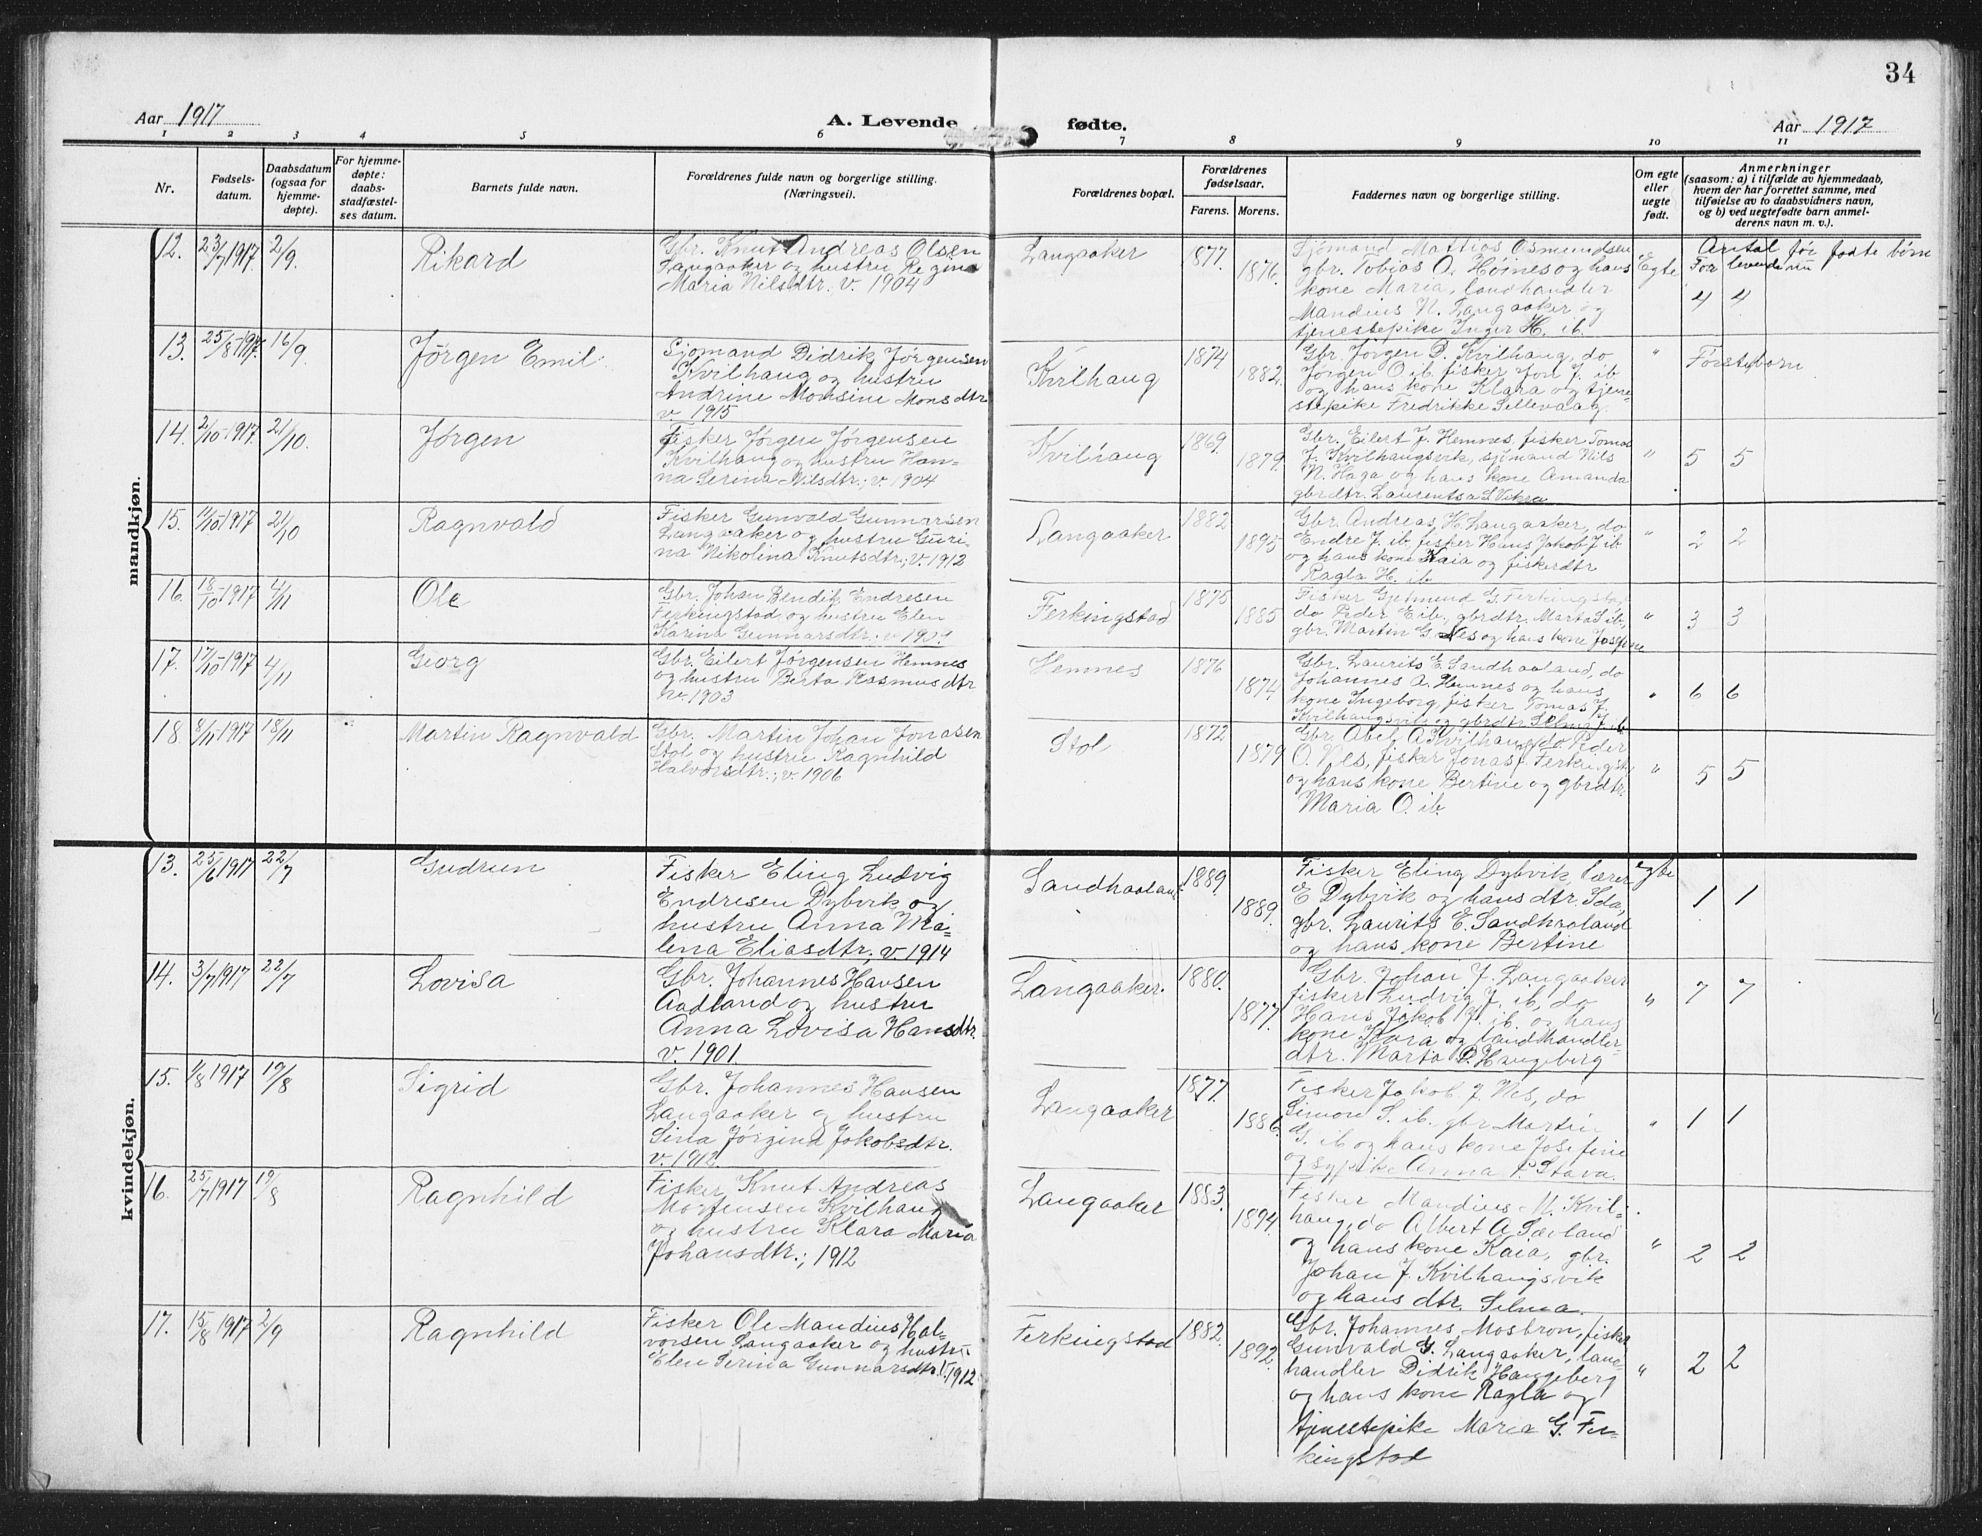 34
Aar 1917
A. Levende fødte.
Aar 1917
1 2 3 4 5 6 7 8 9 10 11
Nr.
Fødsels-
datum.
Daabsdatum
(ogsaa for
hjemme-
døpte).
For hjemme-
døpte:
daabs-
stadfæstel-
ses datum.
Barnets fulde navn.
Forældrenes fulde navn og borgerlige stilling.
(Næringsvei).
Forældrenes bopæl.
Forældrenes
fødselsaar.
Farens. Morens.
Faddernes navn og borgerlige stilling.
Om egte
eller
uegte
født.
Anmerkninger
(saasom: a) i tilfælde av hjemmedaab,
hvem der har forrettet samme, med
tilføielse av to daabsvidners navn,
og b) ved uegtefødte barn anmel-
derens navn m. v.).
mandkjøn.
12. 23/7 1917. 2/9. Rikard
Gbr. Knut Andreas Olsen
Langaaker og hustru Regine
Maria Nilsdtr. v. 1904
Langaaker
1877. 1876.
Sjømand Mattias Osmundsen
gbr. Tobias O. Høines og hans
kone Maria, landhandler
Mandius N. Langaaker og
tjenestepike Inger H. ib.
Egte
Antal før fødte børn
For levende nu
4 4
13. 25/8 1917. 16/9. Jørgen Emil
Sjømand Didrik Jørgensen
Kvilhaug og hustru
Andrine Monsine Monsdtr
v. 1915
Kvilhaug
1874 1882.
Gbr. Jørgen D. Kvilhaug, do
Jørgen O. ib. fisker Jon J. ib
og hans kone Klara og tjene-
stepike Fredrikke Sillevaag.
" Førstebarn
14. 2/10 1917. 21/10. Jørgen
Fisker Jørgen Jørgensen
Kvilhaug og hustru Han-
na Serina Nilsdtr.; v. 1904
Kvilhaug
1869. 1879.
Gbr. Eilert J. Hemnes, fisker Tomas
J. Kvilhaugsvik, sjømand Nils
N. Haga og hans kone Amanda
gbrdtr. Laurentsa S. Vikra
" 5 5
15. 11/10 1917 21/10 Ragnvald
Fisker Gunvald Gunnarsen
Langaaker og hustru Guri-
na Nikolina Knutsdtr.; v. 1912
Langaaker
1882 1895
Gbr. Andreas H. Langaaker, do
Endre J. ib. fisker Hans Jakob J. ib
og hans kone Kaia og fiskerdtr
Ragla H. ib.
" 2 2
16. 18/10 1917 4/11 Ole
Gbr. Johan Bendik Endresen
Ferkingstad og hustru Elen
Karina Gunnarsdtr.; v. 1909
Ferkingstad
1875 1885
Fisker Gjermund G. Ferkingstad
do Peder E. ib., gbrdtr. Marta S. ib,
gbr. Martin G. Nes og hans kone Josefine
" 3 3
17. 17/10 1917 4/11 Georg
Gbr. Eilert Jørgensen Hemnes
og hustru Berta Rasmusdtr
v. 1903
Hemnes
1876 1874
Gbr. Laurits E. Sandhaaland, do
Johannes A. Hemnes og hans
kone Ingeborg, fisker Tomas J.
Kvilhaugsvik og gbrdtr Selma J. ib
" 6 6
18 8/11 1917 18/11 Martin Ragnvald
Gbr. Martin Johan Jonasen
Stol og hustru Ragnhild
Halvorsdtr.; v. 1906
Stol
1872 1879
Gbr. Abel A. Kvilhaug, do Peder
O. Nes, fisker Jonas J. Ferkingst.
og hans kone Bertine og gbrdtr.
Maria O. ib.
" 5 5
kvindekjøn.
13. 25/6 1917 22/7 Gudrun
Fisker Eling Ludvig
Endresen Dybvik og
hustru Anna Ma-
lena Eliasdtr; v. 1914
Sandhaaland
1889 1889.
Fisker Eling Dybvik, lærer
E Dybvik og hans dtr. Ida,
gbr. Laurits E. Sandhaaland
og hans kone Bertine
egte 1 1
14. 3/7 1917 22/7 Lovisa
Gbr. Johannes Hansen
Aadland og hustru
Anna Lovisa Hansdtr.
v. 1901
Langaaker.
1880. 1877.
Gbr. Johan J. Langaaker
fisker Ludvig J. ib, do
Hans Jakob J. ib. og hans
kone Klara og landhandler-
dtr. Marta D. Haugeberg
" 7 7
15. 1/8 1917 19/8 Sigrid
Gbr. Johannes Hansen
Langaaker og hustru
Sina Jørgina Jakobsdtr.
v. 1912
Langaaker
1877. 1886.
Fisker Jakob J. Nes, do
Simon S. ib. gbr Martin
G. ib og hans kone Josefine
og sypike Anna P. Stava.
" 1 1
16. 25/7 1917 19/8 Ragnhild
Fisker Knut Andreas
Mortensen Kvilhaug
og hustru Klara Maria
Johansdtr.; 1912
Langaaker
1883. 1894.
Fisker Mandius M. Kvil-
haug, do Albert A. Sævland
og hans kone Kaia, gbr.
Johan J. Kvilhaugsvik
og hans dtr. Selma.
" 2 2
17. 15/8 1917 2/9 Ragnhild
Fisker Ole Mandius Hal-
vorsen Langaaker og hustru
Elen Serina Gunnarsdtr. v. 1912.
Ferkingstad
1882. 1892.
Gbr. Johannes Mosbron, fisker
Gunvald G. Langaaker, land-
handler Didrik Haugeberg
og hans kone Ragla og
tjenestepike Maria G. Fer-
kingstad
" 2 2